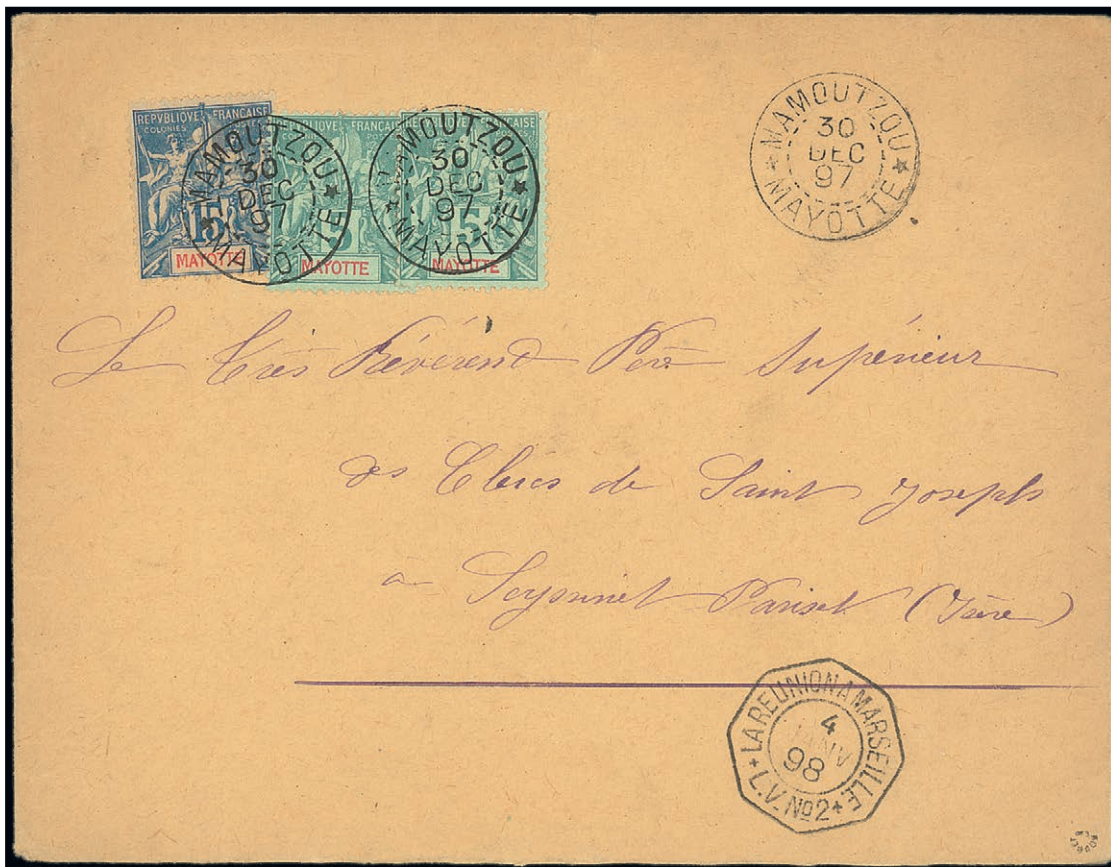 REPVBLIQUE FRANÇAISE
COLONIES POSTES
15
MAYOTTE
REPVBLIQUE FRANÇAISE
COLONIES POSTES
5
MAYOTTE
5
MAYOTTE
MAMOUTZOU
30
DEC
97
MAYOTTE
MAMOUTZOU
30
DEC
97
MAYOTTE
MAMOUTZOU
30
DEC
97
MAYOTTE
Le Très Révérend Père Supérieur
des Clercs de Saint Joseph
à Seyssinet Pariset (Isère)
LA REUNION A MARSEILLE
4
JANV
98
L.V. No2